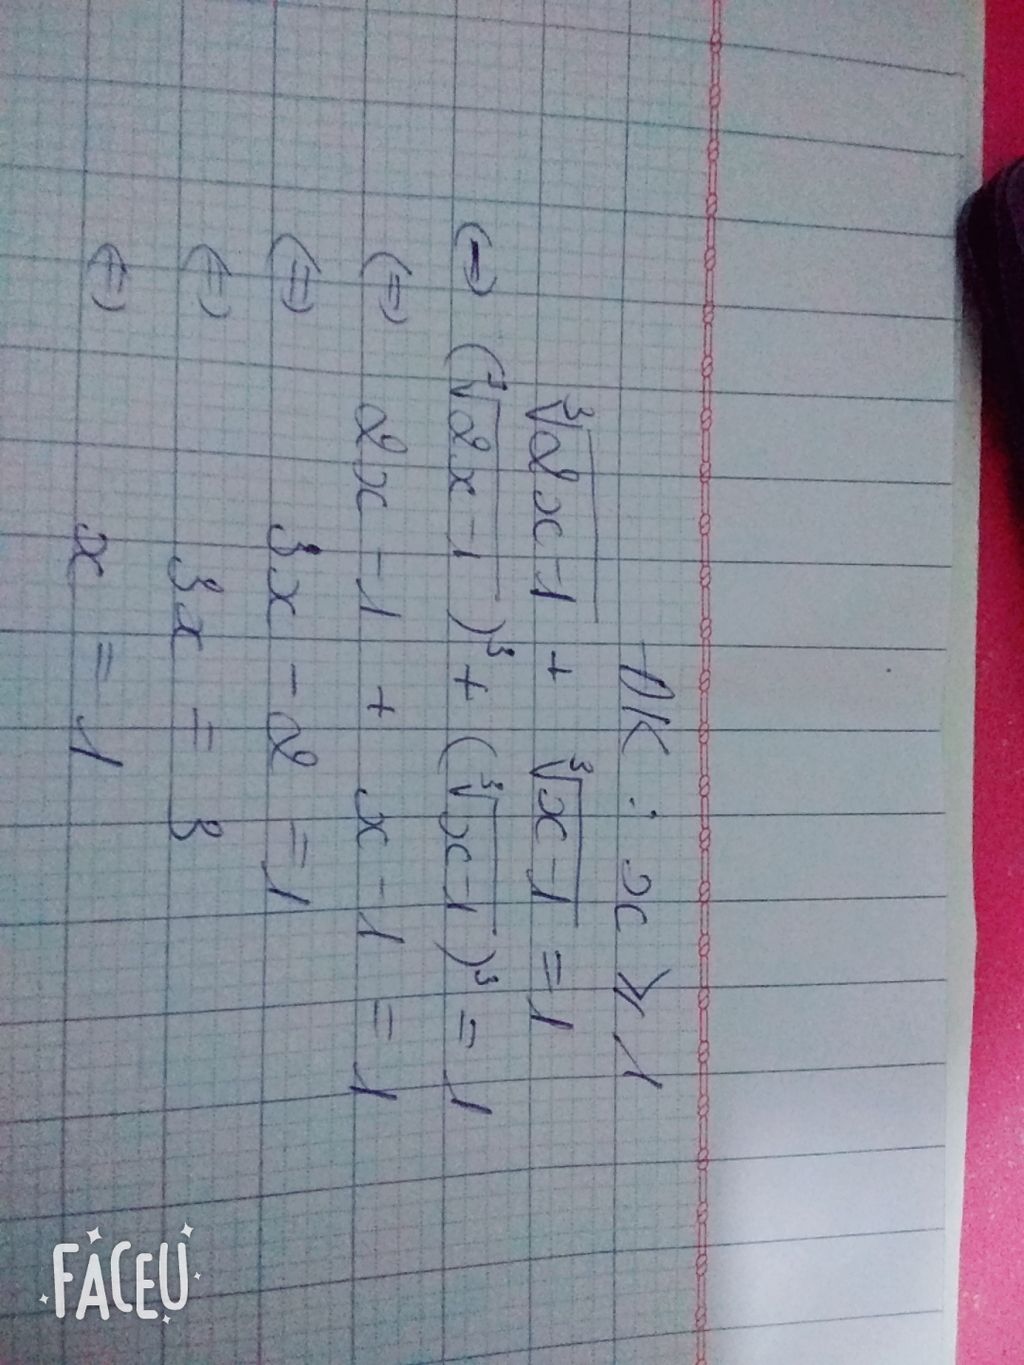 ĐK : x ≥ 1
∛(2x-1) + ∛(x-1) = 1
(=) (∛(2x-1))³ + (∛(x-1))³ = 1
(=) 2x - 1 + x - 1 = 1
(=) 3x - 2 = 1
(=) 3x = 3
(=) x = 1
FACEU